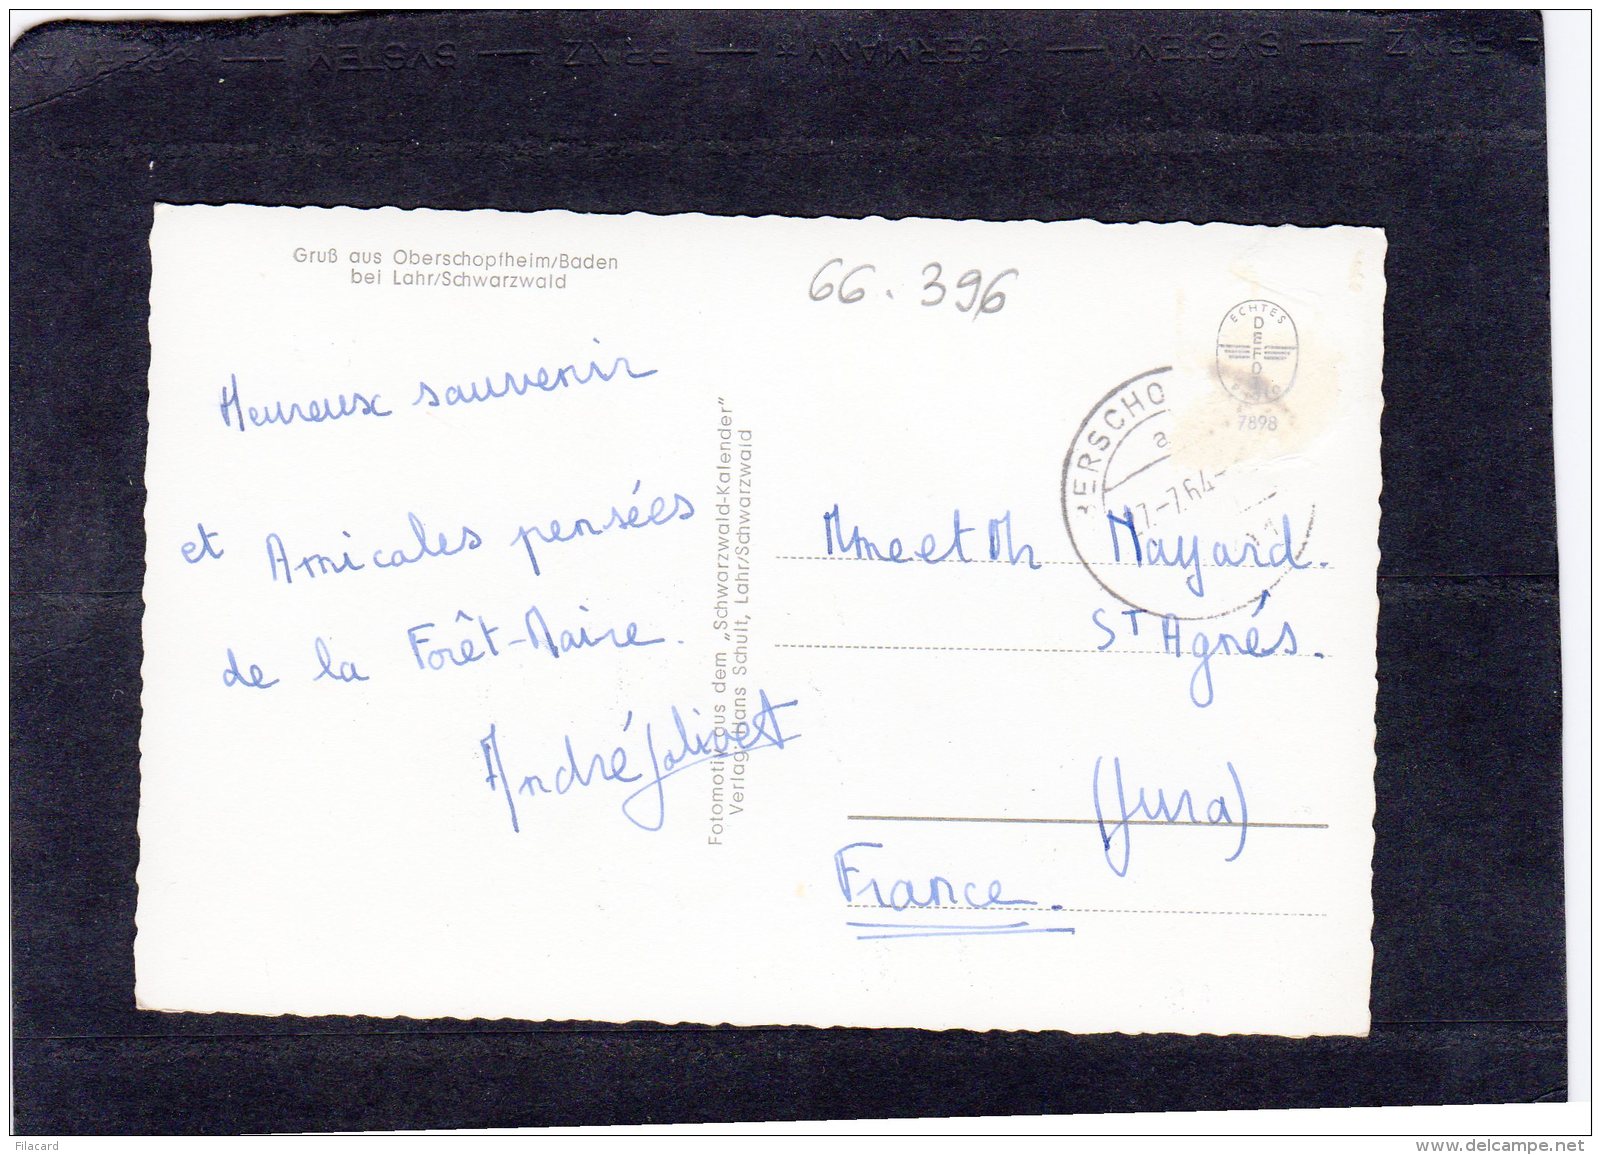 Gruß aus Oberschopfheim/Baden
bei Lahr/Schwarzwald
66.396
Heureux souvenir
et Amicales pensées
de la Forêt-Noire.
André Jolivet
Fotomotiv aus dem „Schwarzwald-Kalender"
Verlag: Hans Schult, Lahr/Schwarzwald
ECHTES
7898
BERSCHO
a
7.-7.64-
Mme et Mr Mayard.
ST Agnés.
(Jura)
France.
PRINZ — SYSTEM — *GERMANY* — PRINZ — SYSTEM —
Filacard
www.delcampe.net